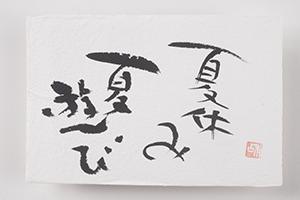 夏休み
夏遊び